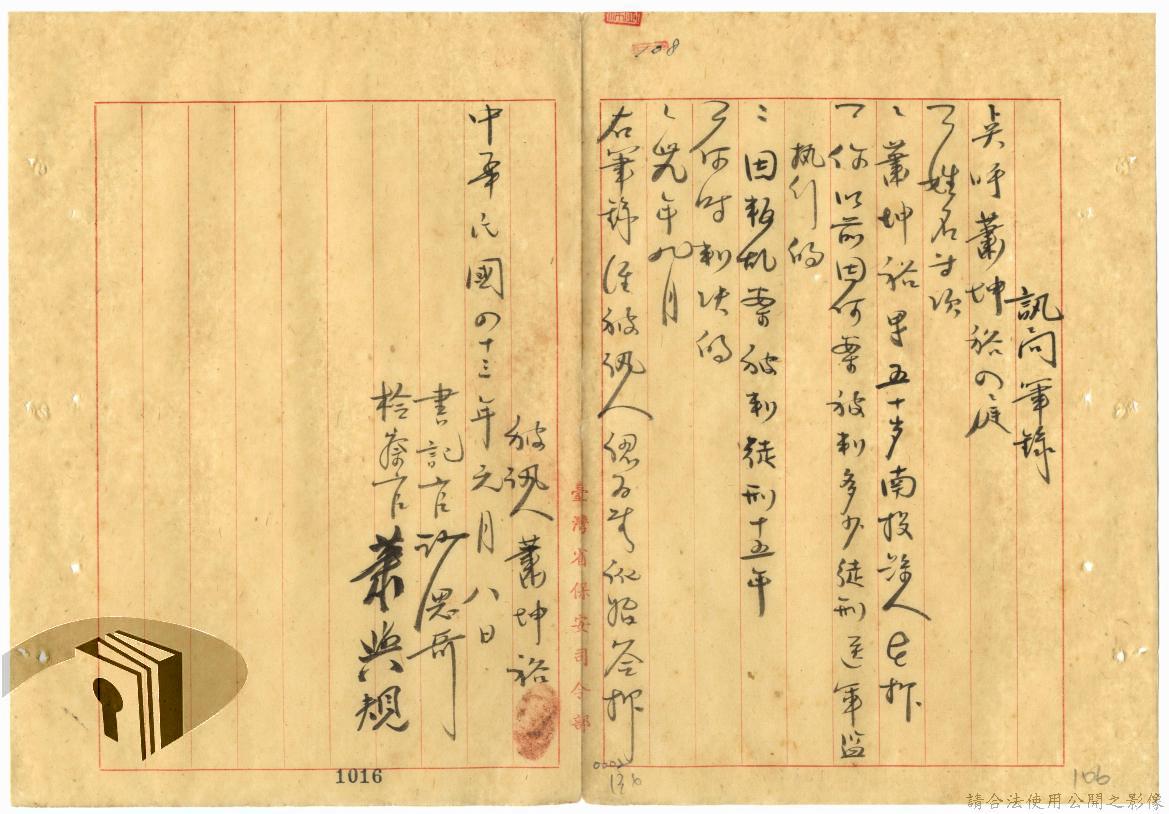 訊問筆錄
點呼蕭坤裕到庭
問 姓名等項
答 蕭坤裕 男 五十歲 南投縣人 在押
問 你以前因何案被判多少徒刑送軍監
執行的
答 因叛亂案被判徒刑十五年
問 何時判決的
答 卅九年九月
右筆錄經被訊人認為無訛始簽押
被訊人 蕭坤裕
中華民國四十三年元月八日
書記官
檢察官 蕭與規
臺灣省保安司令部
108
1016
106
請合法使用公開之影像